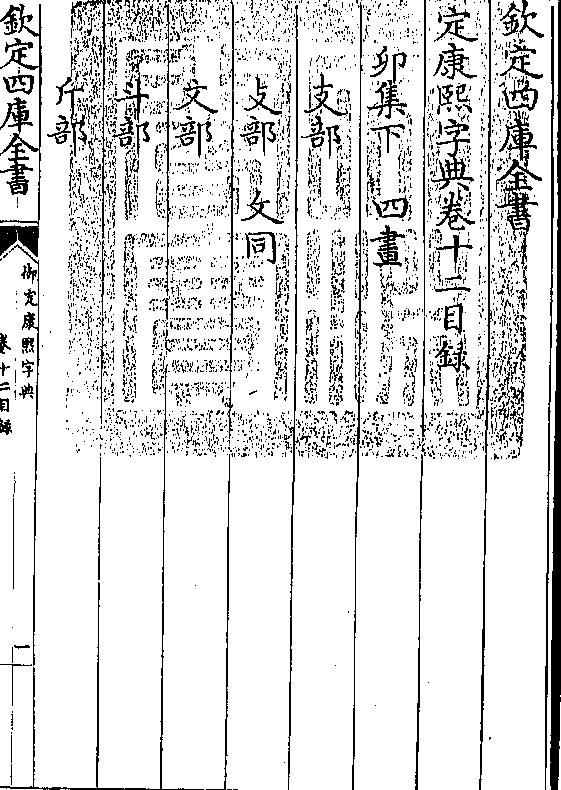 欽定四庫全書
定康熙字典卷十二目録
卯集下 四畫
支部
攴部 攵同
文部
斗部
斤部
欽定四庫全書
御定康熙字典
卷十二目録
一